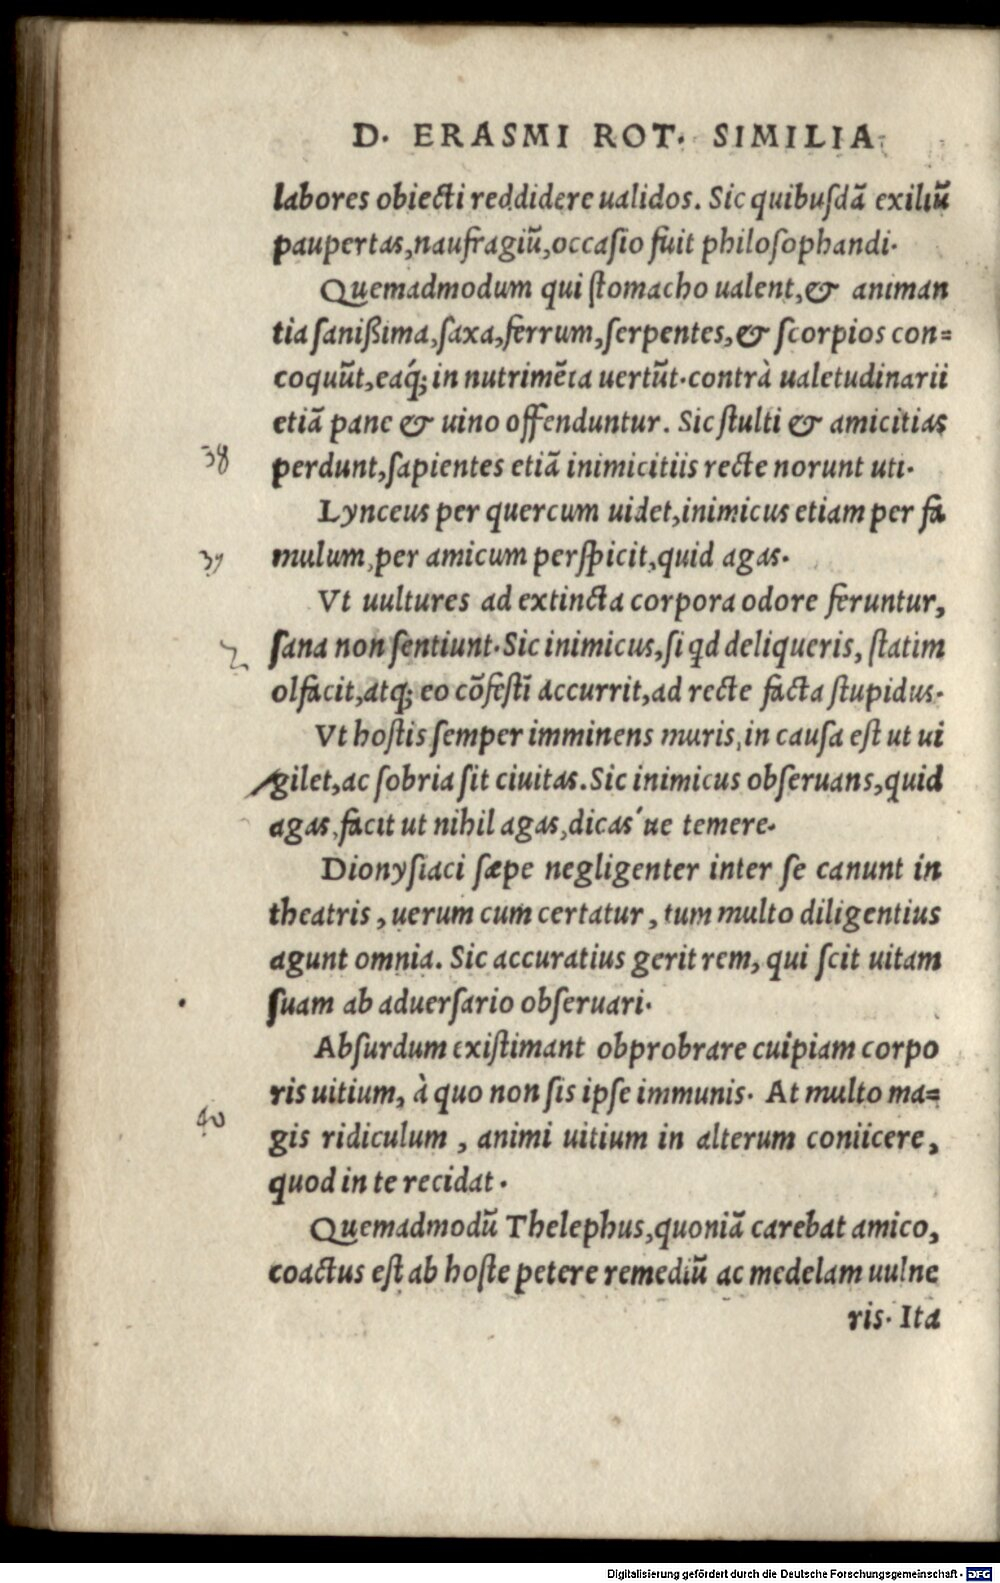 D. ERASMI ROT. SIMILIA
labores obiecti reddidere ualidos. Sic quibusdā exiliū
paupertas, naufragiū, occasio fuit philosophandi.
Quemadmodum qui stomacho ualent, & animan
tia sanißima, saxa, ferrum, serpentes, & scorpios con=
coquūt, eaq́; in nutrimēta uertūt. contrà ualetudinarii
etiā pane & uino offenduntur. Sic stulti & amicitias
38 perdunt, sapientes etiā inimicitiis recte norunt uti.
Lynceus per quercum uidet, inimicus etiam per fa
39 mulum, per amicum perspicit, quid agas.
Vt uultures ad extincta corpora odore feruntur,
sana non sentiunt. Sic inimicus, si qd deliqueris, statim
olfacit, atq; eo cōfestī accurrit, ad recte facta stupidus.
Vt hostis semper imminens muris, in causa est ut ui
gilet, ac sobria sit ciuitas. Sic inimicus obseruans, quid
agas, facit ut nihil agas, dicas´ue temere.
Dionysiaci sæpe negligenter inter se canunt in
theatris, uerum cum certatur, tum multo diligentius
agunt omnia. Sic accuratius gerit rem, qui scit uitam
suam ab aduersario obseruari.
Absurdum existimant obprobrare cuipiam corpo
ris uitium, à quo non sis ipse immunis. At multo ma=
40 gis ridiculum, animi uitium in alterum coniicere,
quod in te recidat.
Quemadmodū Thelephus, quoniā carebat amico,
coactus est ab hoste petere remediū ac medelam uulne
ris. Ita
Digitalisierung gefördert durch die Deutsche Forschungsgemeinschaft - DFG